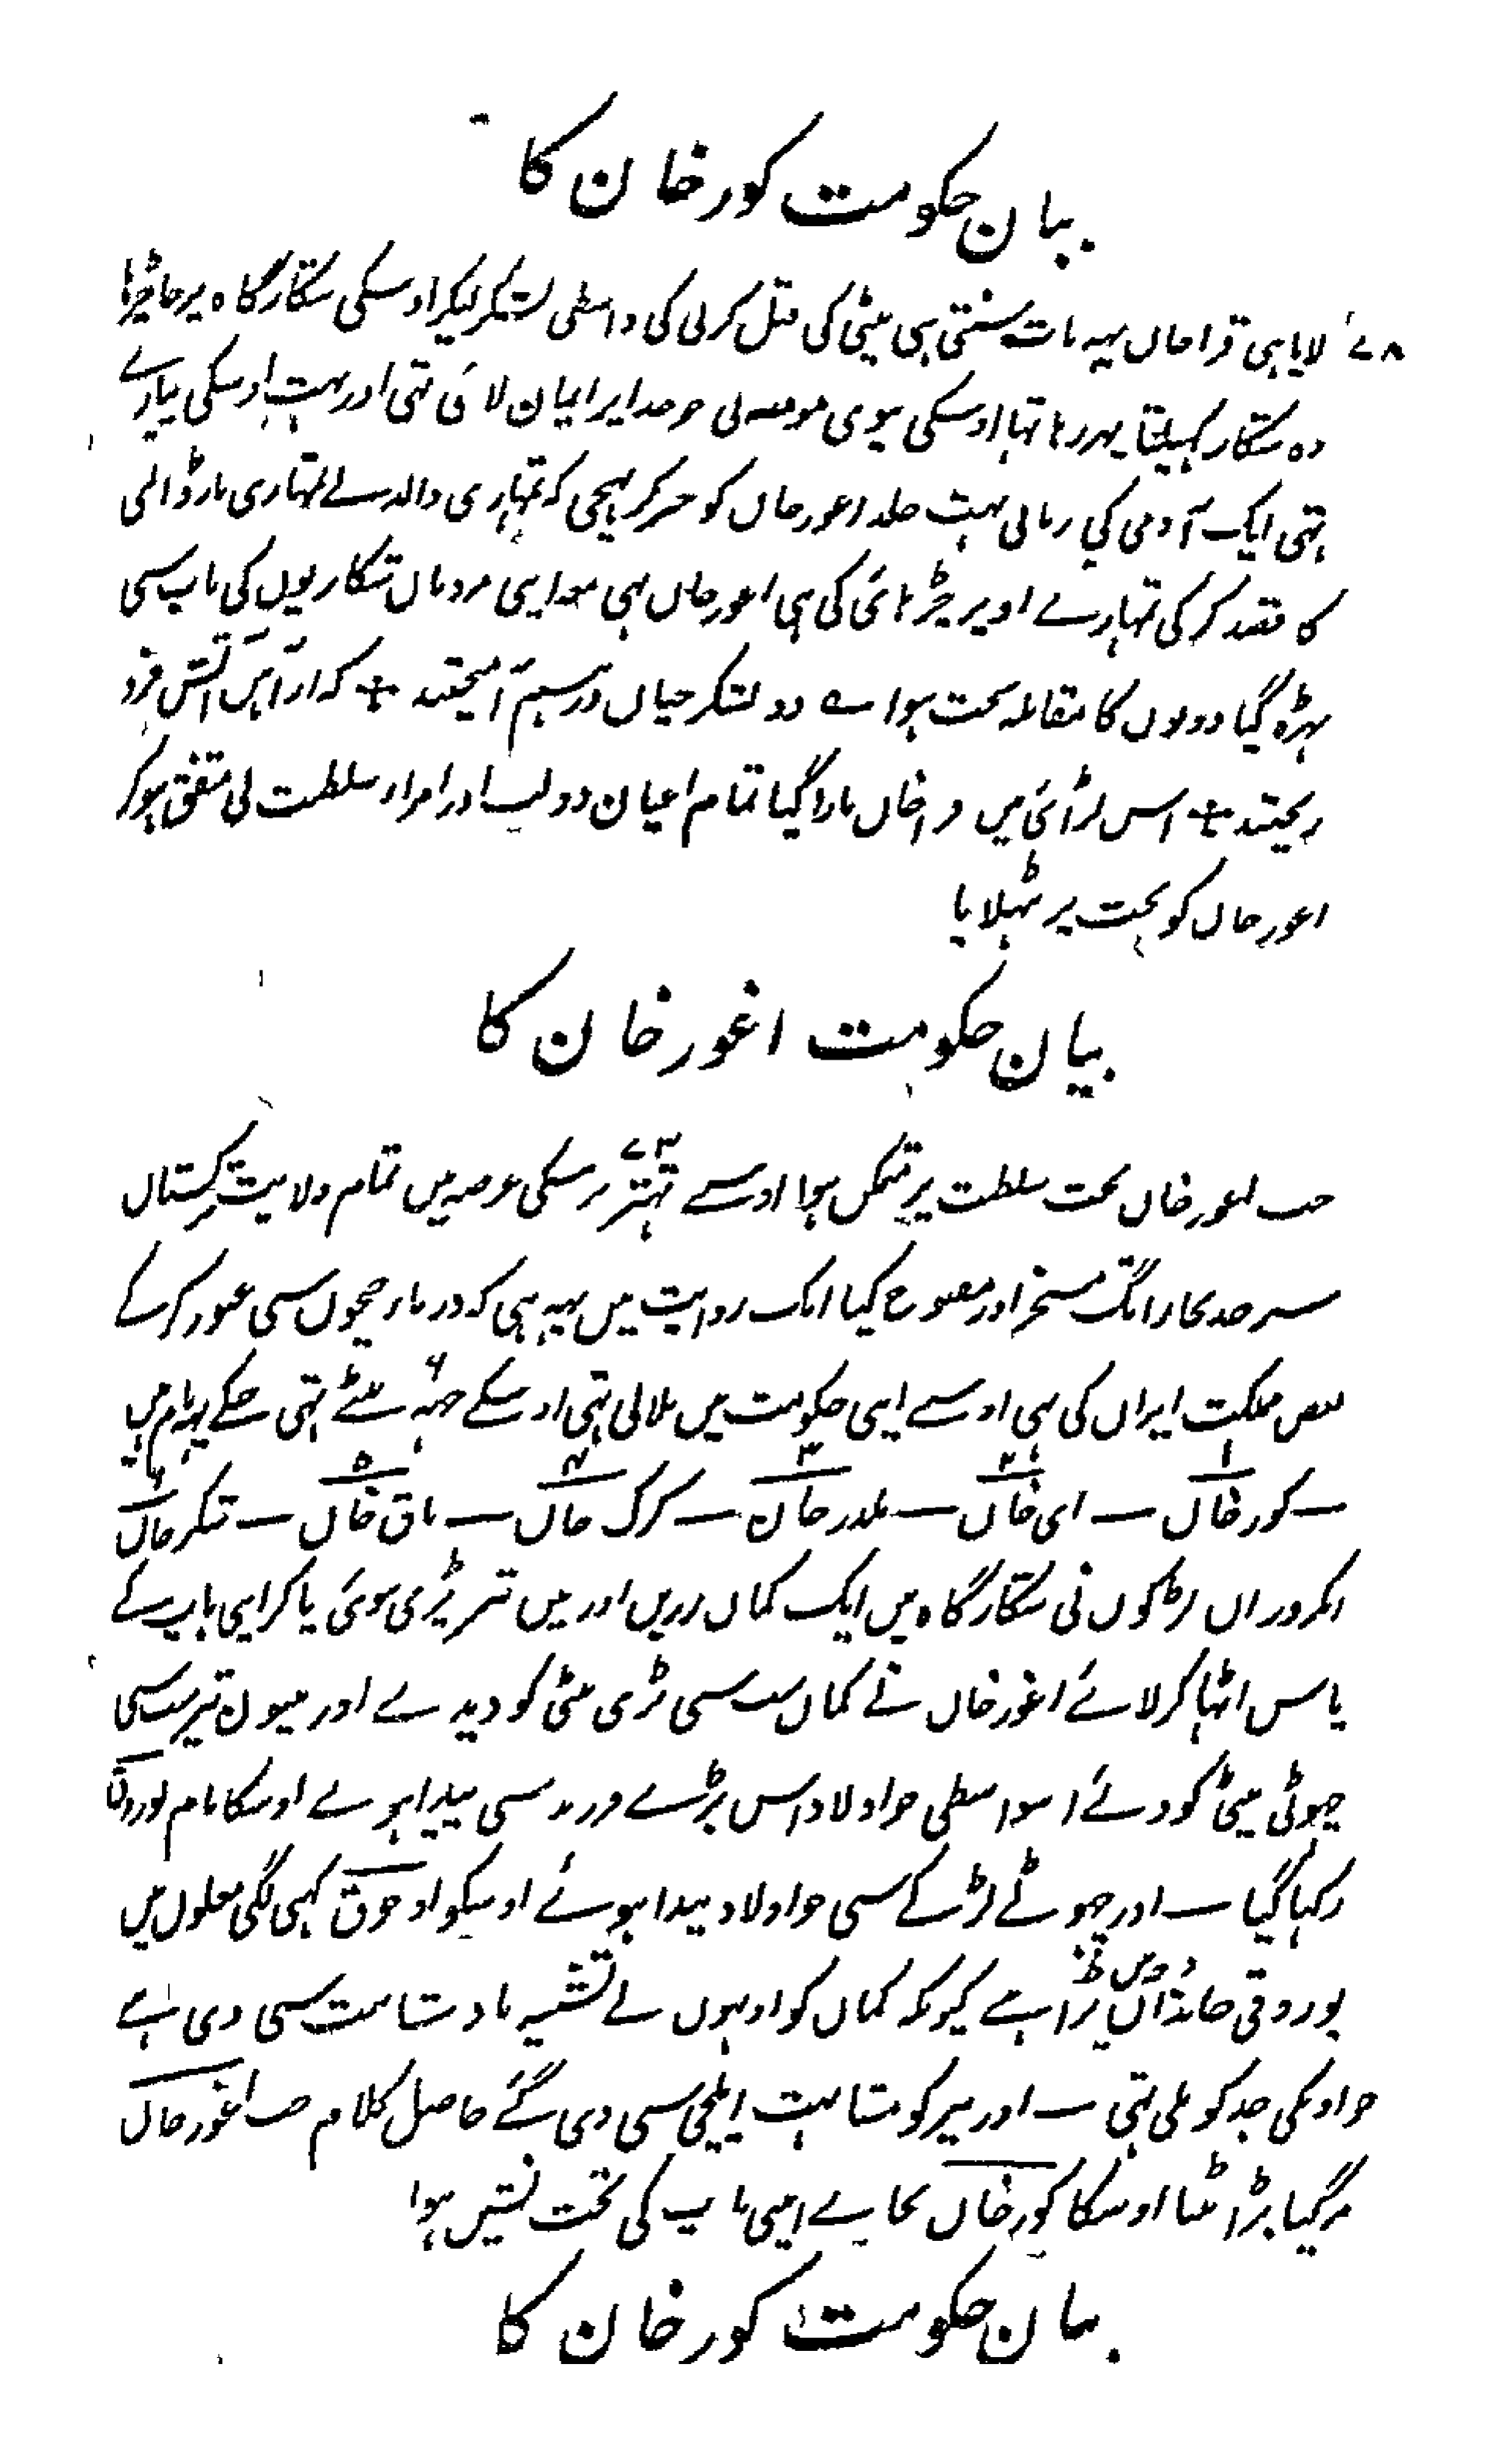 بیان حکومت کور خان کا
۷۸ لایا ہی قرا خاں یہہ بات سنتی ہی بیٹی کی قتل کرنی کی واسطی لشکر لیکر اوسکی شکارگاہ پر جا چڑہا
وہ شکار کہیلتا پہر رہا تہا اوسکی بیوی مومنہ نی جو خدا پر ایمان لائی تہی اور بہت اوسکی پیارے
تہی ایک آدمی کی زبانی بہت جلد اغور خاں کو خبر کر بہیجی کہ تمہاری والد نے تمہاری مار ڈالنی
کا قصد کر کی تمہارے اوپر چڑہائی کی ہی اغور خاں بہی معہ اپنی مردمان شکاریوں کی باپ سی
بہڑ گیا دونوں کا مقابلہ سخت ہوا ے دو لشکر چناں درہم آمیختند + کہ از آہن آتش فرو
ریختند + اس لڑائی میں قرا خاں مارا گیا تمام اعیان دولت اور امراء سلطنت نی متفق ہو کر
اغور خاں کو تخت پر بٹہلایا
بیان حکومت اغور خان کا
جب اغور خاں تخت سلطنت پر متمکن ہوا اوسے ۷۳ تہتر برسکی عرصہ میں تمام ولایت ترکستاں
سرحد بخارا تگ مسخر اور مفتوح کیا ایک روایت میں یہہ ہی کہ دریاء جیحوں سی عبور کر کے
بعض مملکت ایراں کی بہی اوسے اپنی حکومت میں ملا لی تہی اوسکے چہہ ۶ بیٹے تہی جنکے یہہ نام ہیں
— کور خاں ۱ — ای خاں ۲ — یلدر خاں ۳ — کرک خاں ۴ — باق خاں ۵ — تنکر خاں ۶
ایکروز اں لڑکوں نی شکارگاہ میں ایک کماں زریں اور تیں تیر پڑی ہوئی پا کر اپنی باپ کے
پاس اٹہا کر لائے اغور خاں نے کماں سب سی بڑی بیٹی کو دیدے اور تینوں تیر سب سی
چہوٹی بیٹی کو دئے اسواسطی جو اولاد اس بڑے فرزند سی پیدا ہوے اوسکا نام بوروق
رکہا گیا — اور چہوٹے لڑکے سی جو اولاد پیدا ہوئے اوسکو اوجوق کہی لگی مغلوں میں
بوروقی خانداں بڑا ہے کیونکہ کماں کو اونہوں نے تشبیہ بادشاہت سی دی ہے
جو اونکی جد کو ملی تہی — اور تیر کو مشابہت ایلچی سی دی گئے حاصل کلام جب اغور خاں
مر گیا بڑا بیٹا اوسکا کور خاں بجاے اپنی باپ کی تخت نشیں ہوا
بیان حکومت کور خان کا